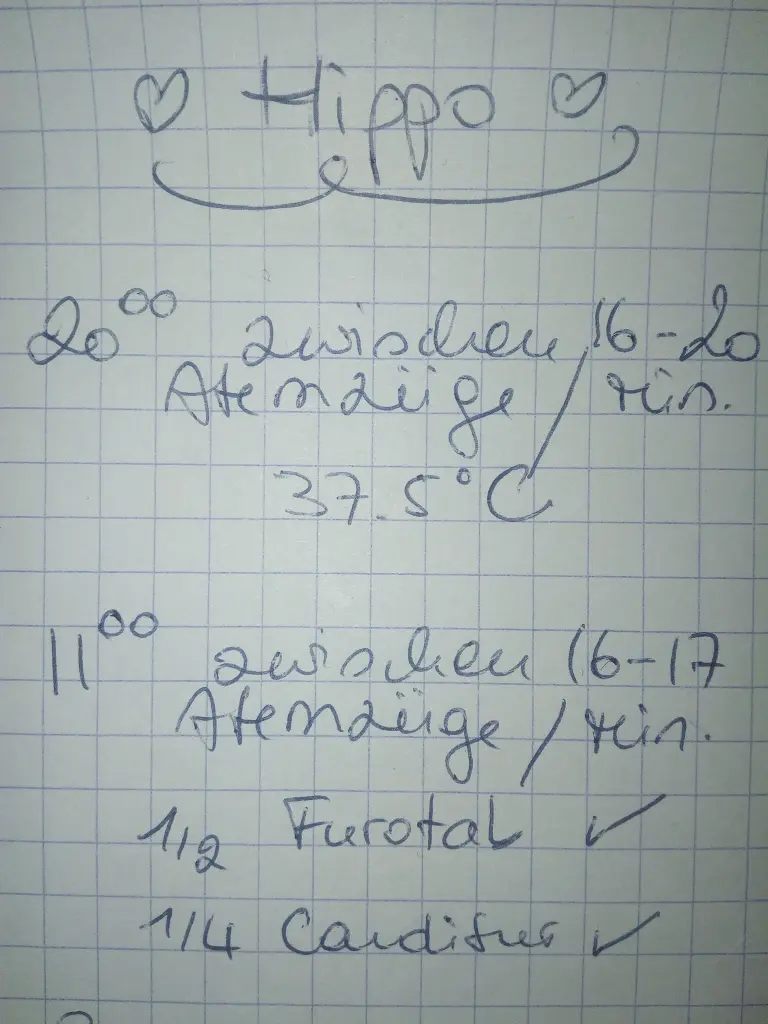 ♡ Hippo ♡
20⁰⁰ zwischen 16-20
Atemzüge / min.
37.5°C
11⁰⁰ zwischen 16-17
Atemzüge / min.
1/2 Furotab ✓
1/4 Cardisur ✓